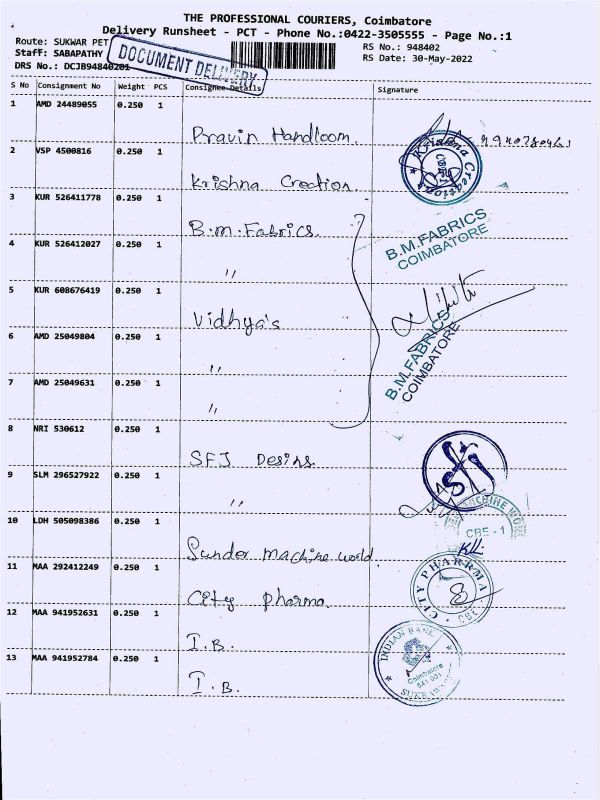 THE PROFESSIONAL COURIERS, Coimbatore
Delivery Runsheet - PCT - Phone No.:0422-3505555 - Page No.:1
Route: SUKWAR PET
RS No.: 948402
Staff: SABAPATHY
RS Date: 30-May-2022
DRS No.: DCJB94840201
DOCUMENT DELIVERY
S No Consignment No Weight PCS Consignee Details Signature
1 AMD 24489055 0.250 1
Pravin Handloom.
2 VSP 4500816 0.250 1
Krishna Creation.
Krishna Creations
3 KUR 526411778 0.250 1
B.m.Fabrics.
B.M.FABRICS
COIMBATORE
4 KUR 526412027 0.250 1
"
5 KUR 608676419 0.250 1
Vidhya's
6 AMD 25049804 0.250 1
"
B.M.FABRICS
COIMBATORE
7 AMD 25049631 0.250 1
"
8 NRI 530612 0.250 1
SFJ Desins.
9 SLM 296527922 0.250 1
"
10 LDH 505098386 0.250 1
CBE - 1
Sunder machine world.
11 MAA 292412249 0.250 1
City pharma.
CITY PHARRMA
12 MAA 941952631 0.250 1
I.B.
INDIAN BANK
Coimbatore
641 001
13 MAA 941952784 0.250 1
I.B.